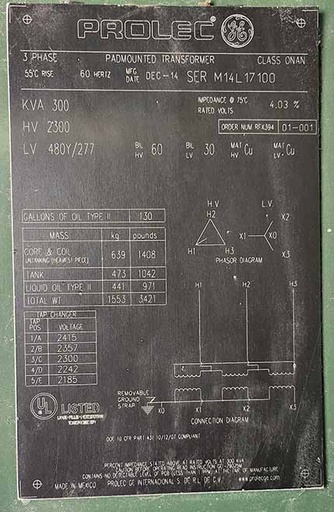 PROLEC GE
3 PHASE PADMOUNTED TRANSFORMER CLASS ONAN
55°C RISE 60 HERTZ MFG DATE DEC-14 SER M14L17100
KVA 300 IMPEDANCE @ 75°C RATED VOLTS 4.03 %
HV 2300 ORDER NUM RFX394 01-001
LV 480Y/277 BIL HV 60 BIL LV 30 MAT HV Cu MAT LV Cu
GALLONS OF OIL TYPE II 130
MASS kg pounds
CORE & COIL 639 1408
(UNTANKING HEAVIEST PIECE)
TANK 473 1042
LIQUID OIL TYPE II 441 971
TOTAL WT 1553 3421
H.V. L.V.
H2 X2
X1 X0
H1 H3 X3
PHASOR DIAGRAM
TAP CHANGER
TAP POS VOLTAGE
1/A 2415
2/B 2357
3/C 2300
4/D 2242
5/E 2185
H1 H2 H3
REMOVABLE GROUND STRAP
X0 X1 X2 X3
CONNECTION DIAGRAM
UL LISTED
DOE 10 CFR PART 431 10/12/07 COMPLIANT
PERCENT IMPEDANCE STATED ABOVE AT RATED VOLTS AT 300 KVA
CAUTION BEFORE OPERATING READ INSTRUCTION
CONTAINS NO DETECTABLE LEVEL OF PCB (LESS THAN 1 PPM) AT THE TIME OF MANUFACTURE
MADE IN MEXICO PROLEC GE INTERNACIONAL S. DE R.L. DE C.V. www.prolecge.com